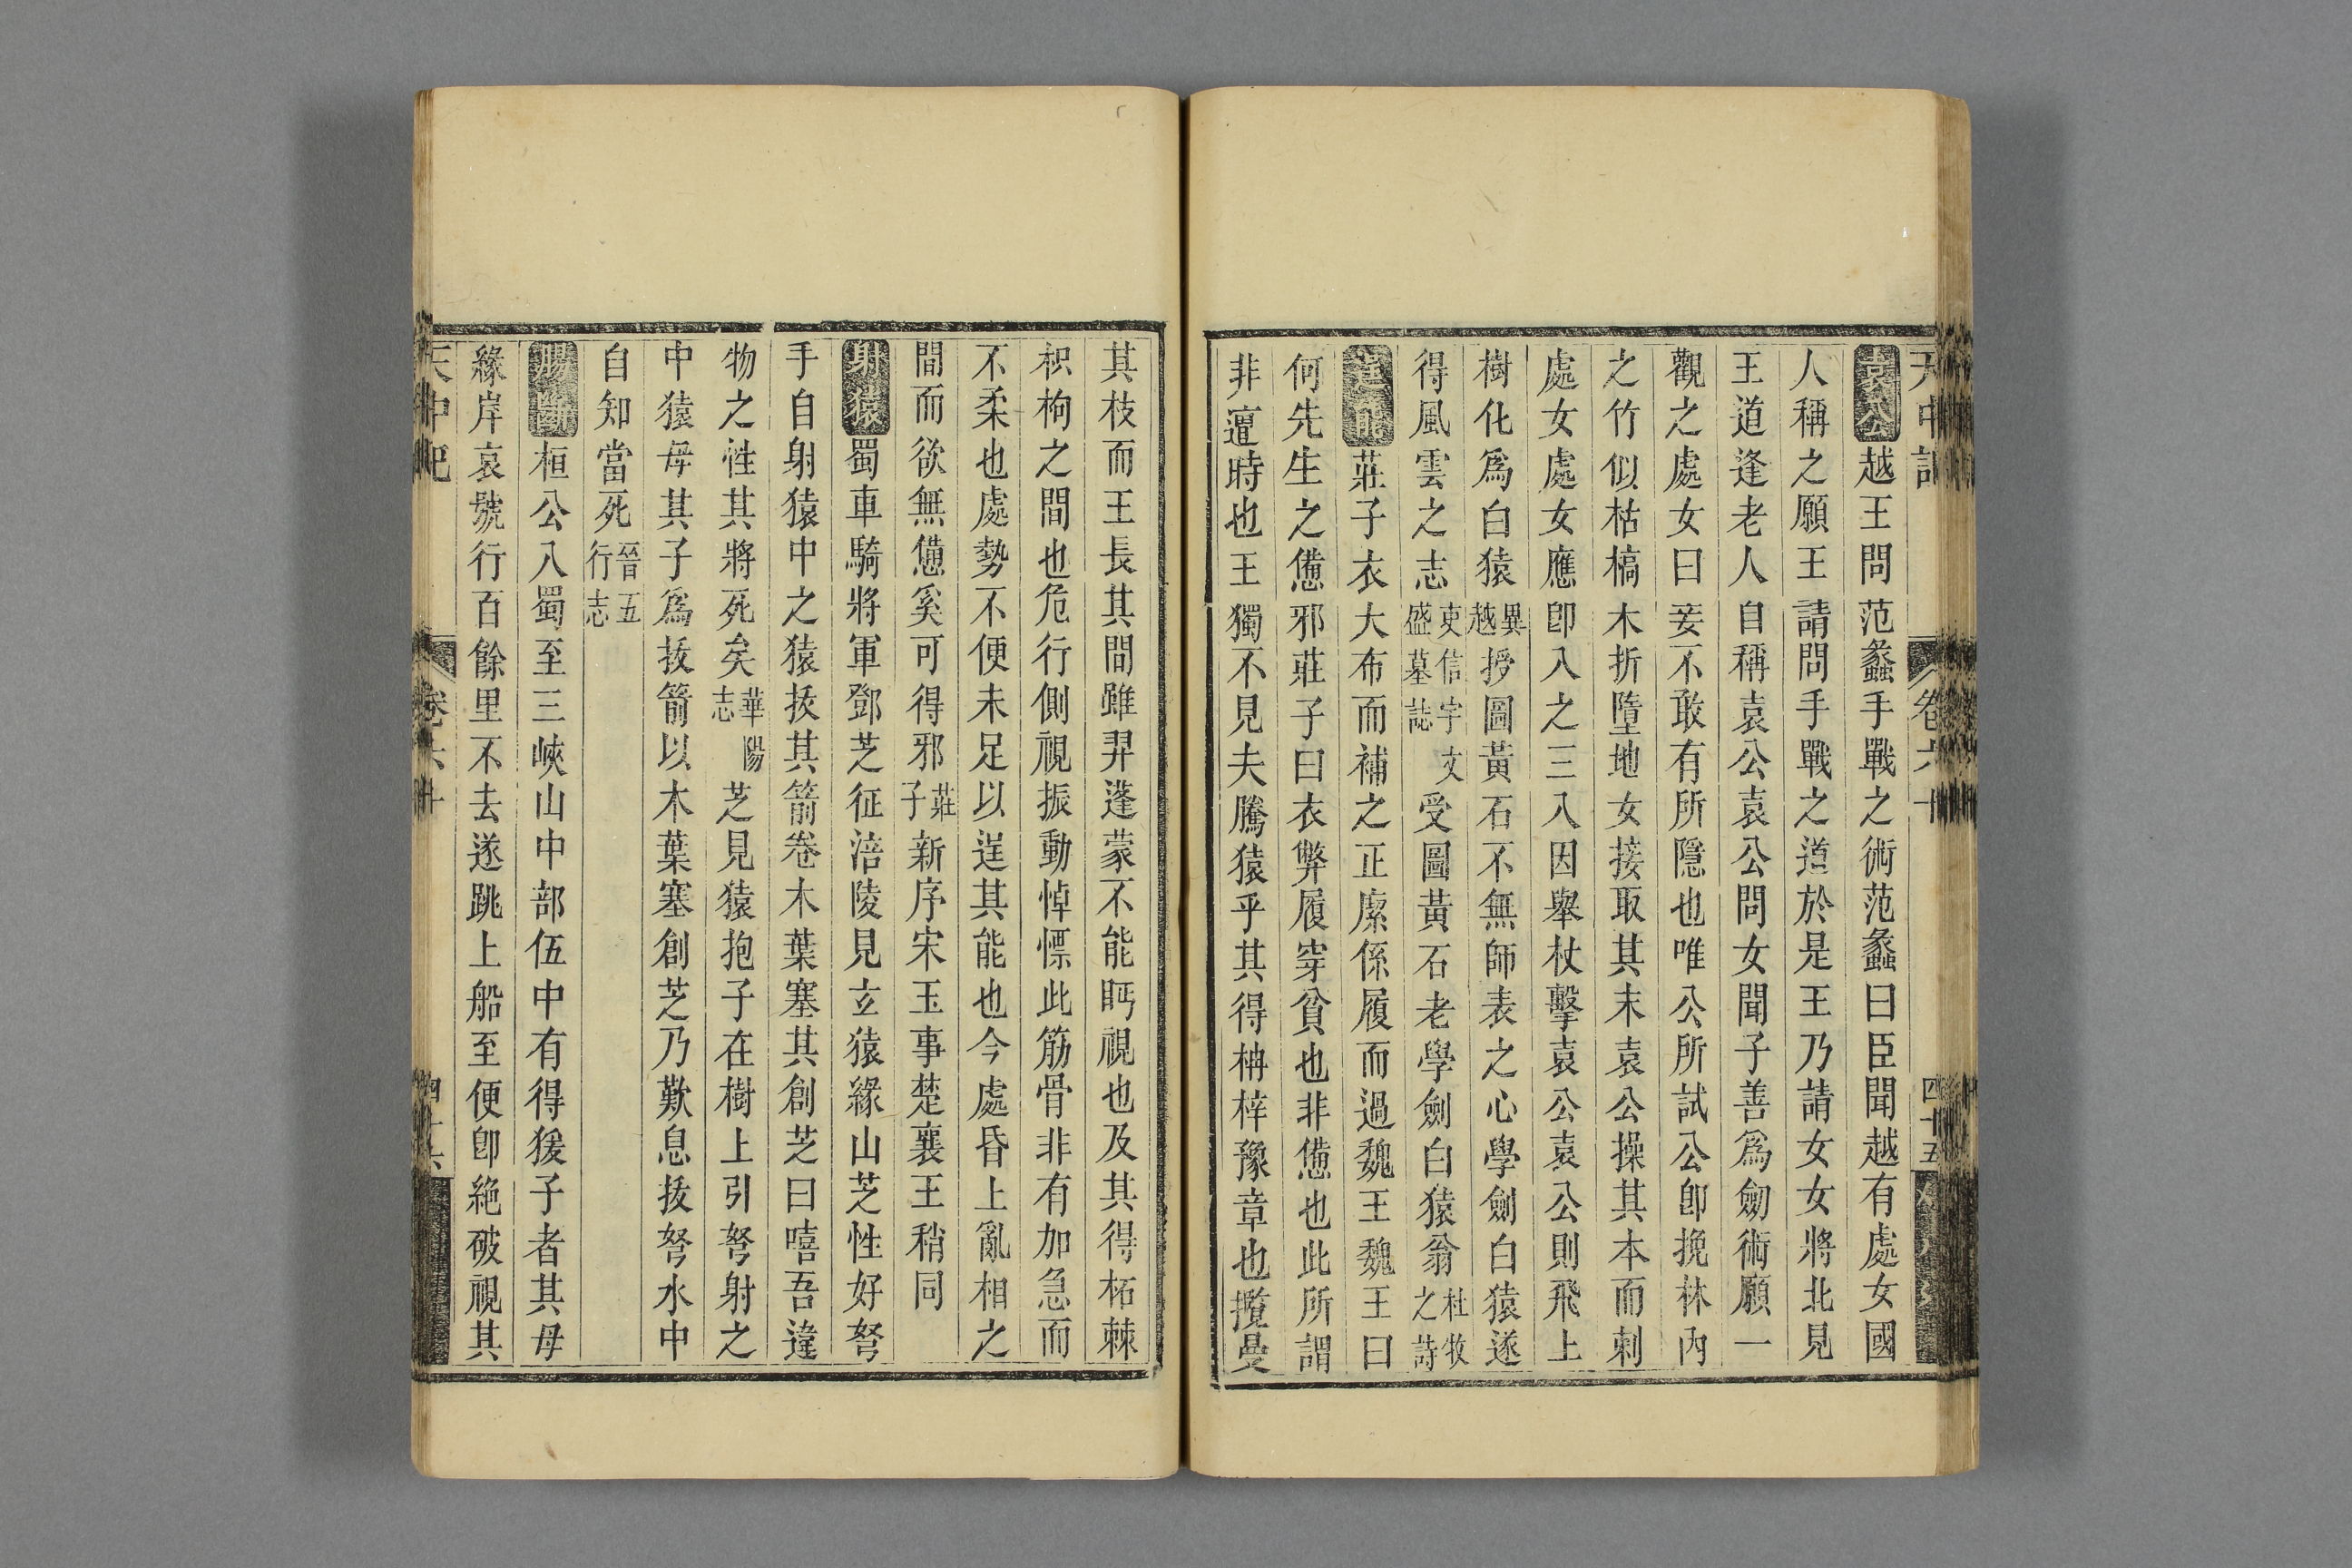 天中記 卷六十 四十五
袁公越王問范蠡手戰之術范蠡曰臣聞越有處女國
人稱之願王請問手戰之道於是王乃請女女將北見
王道逢老人自稱袁公袁公問女聞子善爲劒術願一
觀之處女曰妾不敢有所隱也唯公所試公卽挽林內
之竹似枯槁木折墮地女接取其末袁公操其本而刺
處女處女應卽入之三入因舉杖擊袁公袁公則飛上
樹化爲白猿吳越授圖黃石不無師表之心學劍白猿遂
得風雲之志庾信宇文盛墓誌受圖黃石老學劍白猿翁杜牧之詩
逞能莊子衣大布而補之正緳係履而過魏王魏王曰
何先生之憊邪莊子曰衣弊履穿貧也非憊也此所謂
非遭時也王獨不見夫騰猿乎其得枏梓豫章也攬蔓
其枝而王長其間雖羿蓬蒙不能眄視也及其得柘棘
枳枸之間也危行側視振動悼慄此筋骨非有加急而
不柔也處勢不便未足以逞其能也今處昏上亂相之
間而欲無憊奚可得邪莊子新序宋玉事楚襄王稍同
射猿蜀車騎將軍鄧芝征涪陵見玄猿緣山芝性好弩
手自射猿中之猿拔其箭卷木葉塞其創芝曰嘻吾違
物之性其將死矣華陽志芝見猿抱子在樹上引弩射之
中猿母其子爲拔箭以木葉塞創芝乃歎息拔弩水中
自知當死晉五行志
腸斷桓公入蜀至三峽山中部伍中有得猨子者其母
緣岸哀號行百餘里不去遂跳上船至便卽絶破視其
天中記 卷六十 四十六